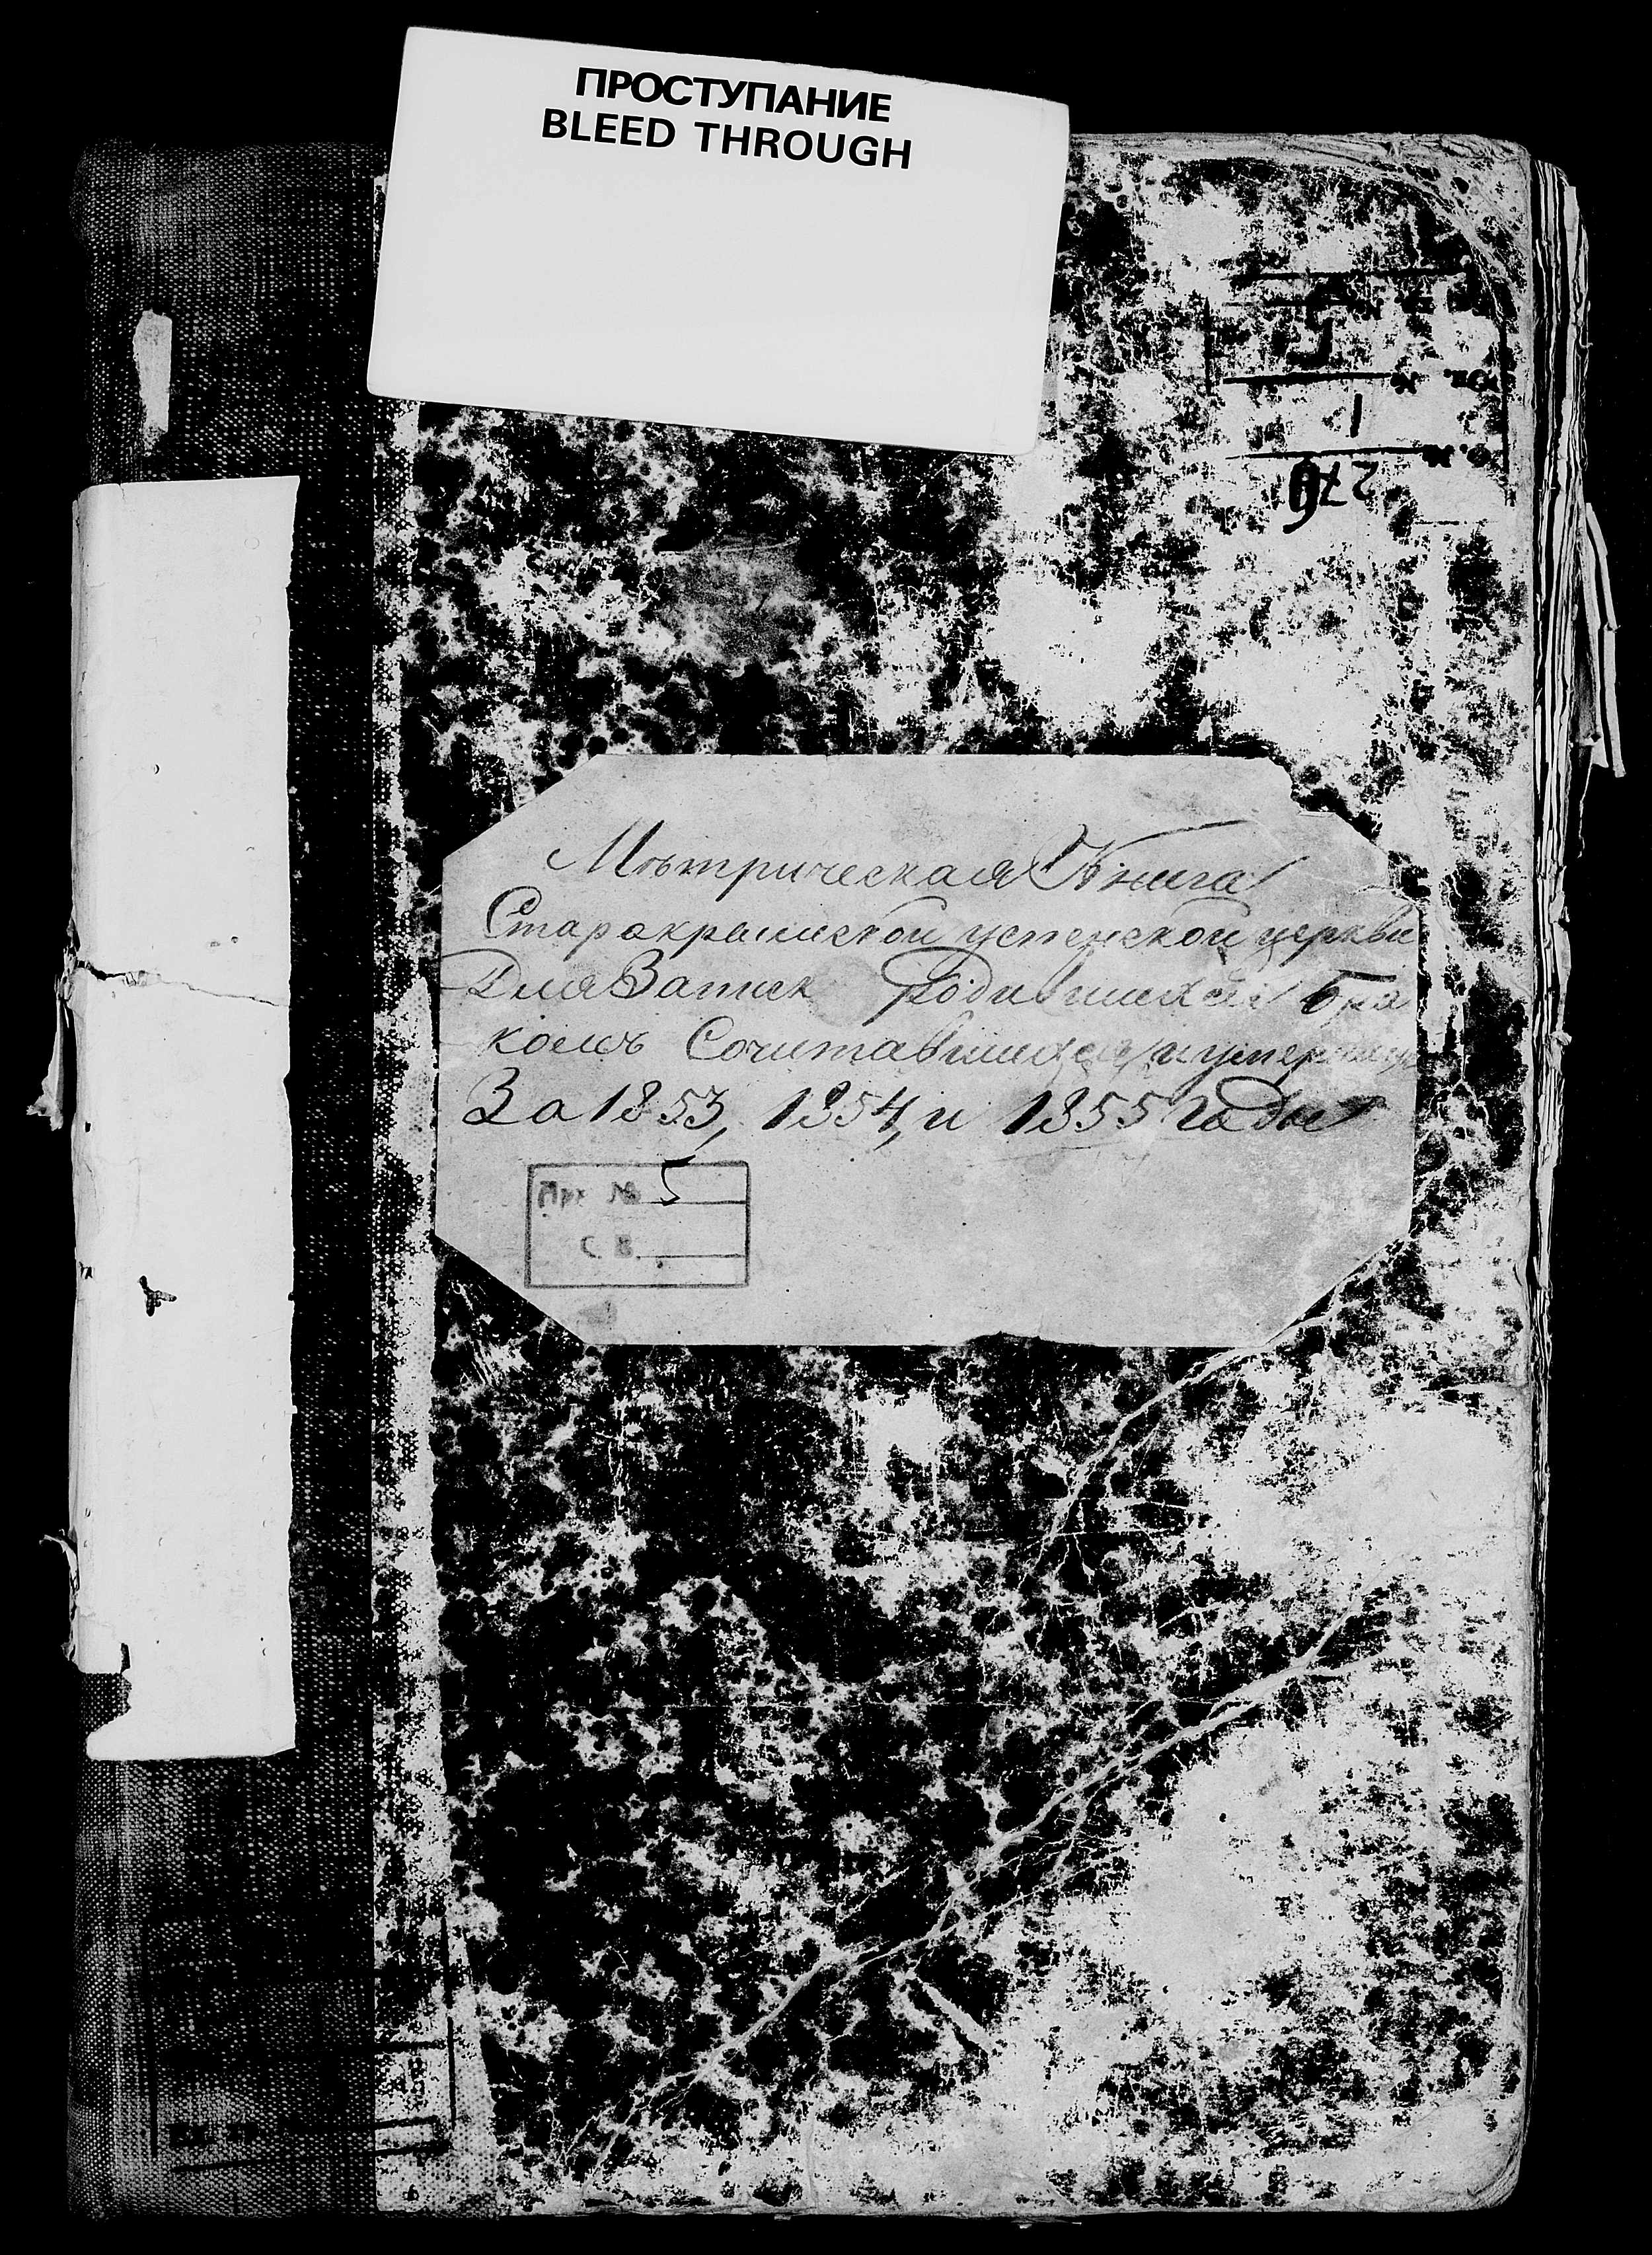 ПРОСТУПАНИЕ
BLEED THROUGH
№ 5
№ 1
№ 276
Мѣтрическая Книга
Старокрымской успенской церкви
Для Записк Родившихся Бра
комъ Сочитавшихся и умерших
За 1853, 1854, и 1855 Годы
Арх № 5
С. В.